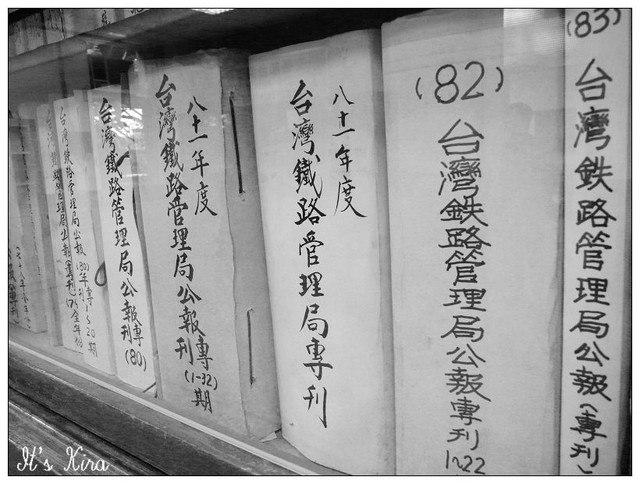 (83)
台灣鉄路管理局公報(專刊)
(82)
台灣鉄路管理局公報專刊
1~22
八十一年度
台灣鐵路管理局專刊
八十一年度
台灣鐵路管理局公報專刊(1-32)期
台灣鐵路管理局公報專刊(80)
台灣鉄路管理局公報
It's Kira